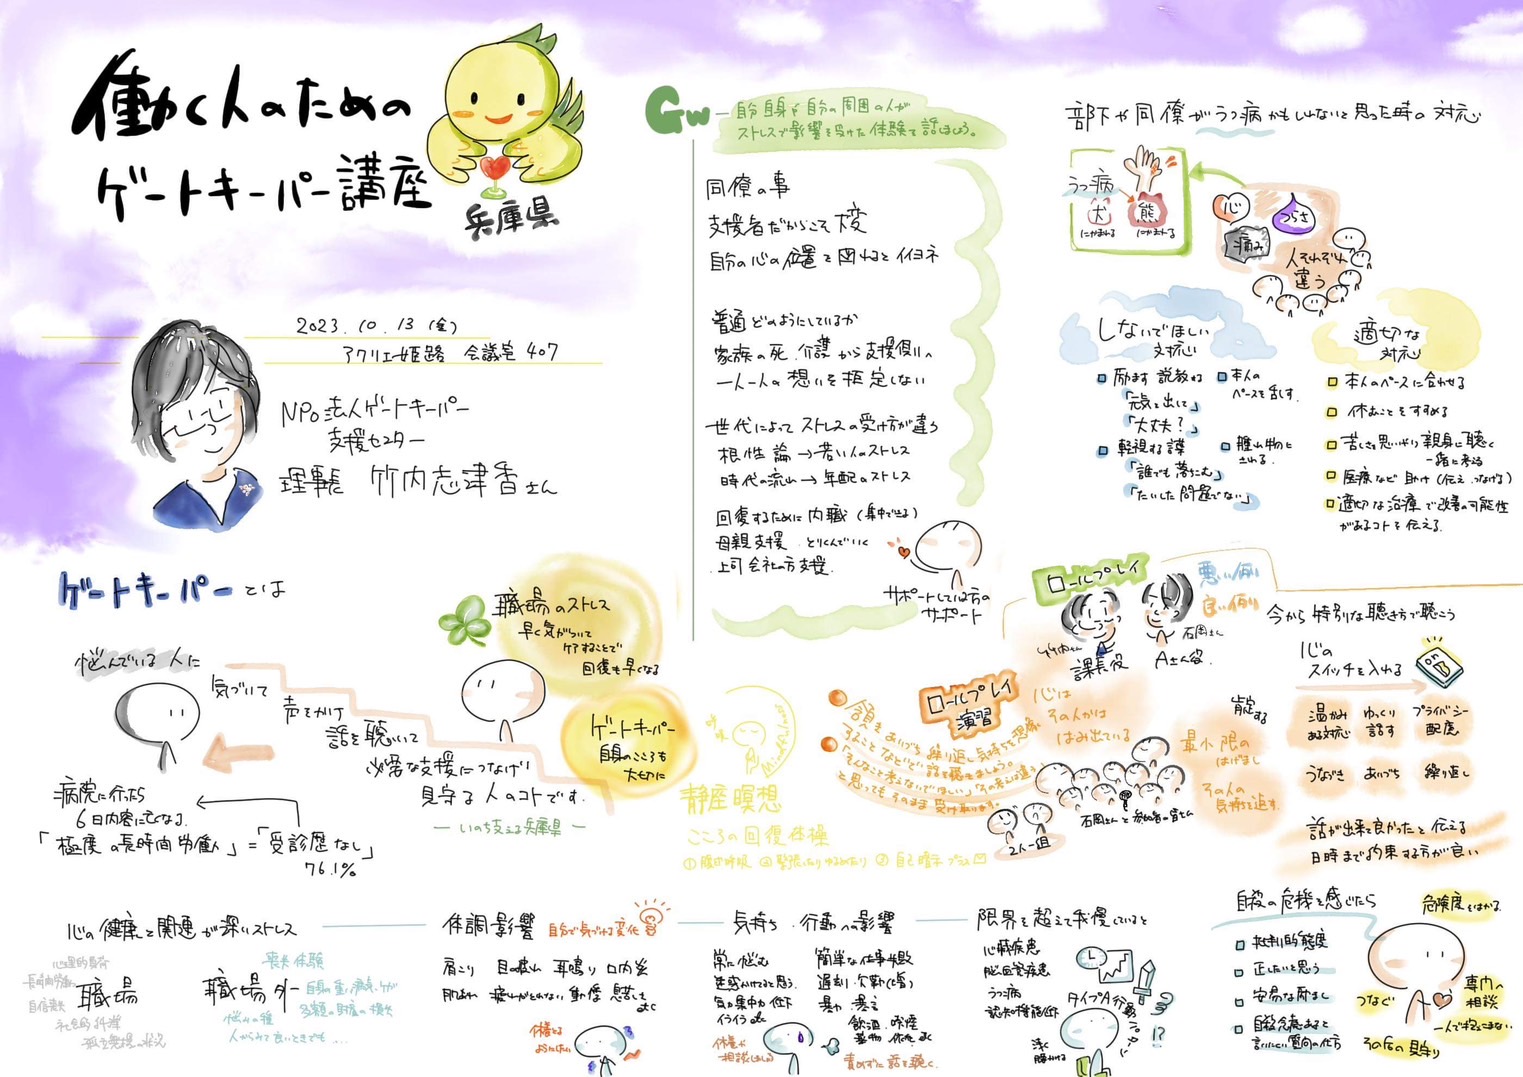 働く人のための
ゲートキーパー講座
兵庫県
2023.10.13(金)
アクリエ姫路 会議室 407
NPO法人ゲートキーパー
支援センター
理事長 竹内志津香さん
Gw
自分自身や自分の周囲の人が
ストレスで影響を受けた体験を話しましょう。
同僚の事
支援者だからこそ大変
自分の心の位置を図れるとイイヨネ
普通どのようにしているか
家族の死 介護から支援側へ
一人一人の想いを否定しない
世代によってストレスの受け方が違う
根性論→若い人のストレス
時代の流れ→年配のストレス
回復するために内職(集中できる)
母親支援 とりくんでいく
上司会社の方支援
サポートしている方の
サポート
部下や同僚がうつ病かもしれないと思った時の対応
うつ病
犬
にかまれる
熊
にかまれる
心
つらさ
痛み
人それぞれ
違う
しないでほしい
対応
励ます 説教する
「元気を出して」
「大丈夫?」
軽視する
「誰でも落ちこむ」
「たいした問題でない」
本人の
ペースを乱す
腫れ物に
される
適切な
対応
本人のペースに合わせる
休むことをすすめる
苦しさを思いやり親身に聴く
一緒に考える
医療など助け(伝え つなげる)
適切な治療で改善の可能性
があるコトを伝える
ゲートキーパーとは
悩んでいる人に
気づいて
声をかけ
話を聴いて
必要な支援につなげ
見守る人のコトです.
―いのち支える兵庫県―
病院に行ったら
6日内容に亡くなる
「極度の長時間労働」=「受診歴なし」
76.1%
職場のストレス
早く気がついて
ケアすることで
回復も早くなる
ゲートキーパー
自身のこころも
大切に
呼吸
静座瞑想
こころの回復体操
①腹式呼吸 ②緊張したりゆるめたり ③自己暗示プラス
ロールプレイ
悪い例
良い例
課長役
石岡さん
Aさん役
ロールプレイ
演習
心は
その人からは
はみ出ている
頷き あいづち 繰り返し 気持ちを想像
することなどして話を聴きましょう。
「そんなこと考えないでほしい」「その考えは違う」
と思ってもそのまま受け取ります。
2人一組
石岡さんと参加者の皆さん
今から特別な聴き方で聴こう
心の
スイッチを入れる
ON
肯定する
温かみ
ある対応
ゆっくり
話す
プライバシー
配慮
うなづき
あいづち
繰り返し
最小限の
はげまし
その人の
気持ちを返す
話が出来て良かったと伝える
日時まで約束する方が良い
心の健康と関連が深いストレス
心理的負荷
長時間労働
自信喪失
職場
職場外
喪失体験
自身の重い病気・ケガ
多額の財産の損失
悩みの種
人からみて良いときでも...
体調影響
自分で気づける変化
肩こり 目の疲れ 耳鳴り 口内炎
肌あれ 疲れがとれない 動悸 息苦しさ
etc
休養をとる
ようにしたい
気持ち・行動への影響
常に悩む
迷惑かけてると思う
気力・集中力低下
イライラ etc
簡単な仕事失敗
遅刻・欠勤
暴力・暴言
飲酒・喫煙
休養や
相談しましょう
責めずに話を聴く
限界を超えて我慢していると
心臓疾患
脳血管疾患
うつ病
認知機能低下
タイプA行動パターン
浅く
腰かける
自殺の危機を感じたら
批判的態度
正したいと思う
安易な励まし
自殺念慮あると
言いにくい質問の仕方
危険度をはかる
つなぐ
専門へ
相談
一人で抱えこまない
その后の見守り